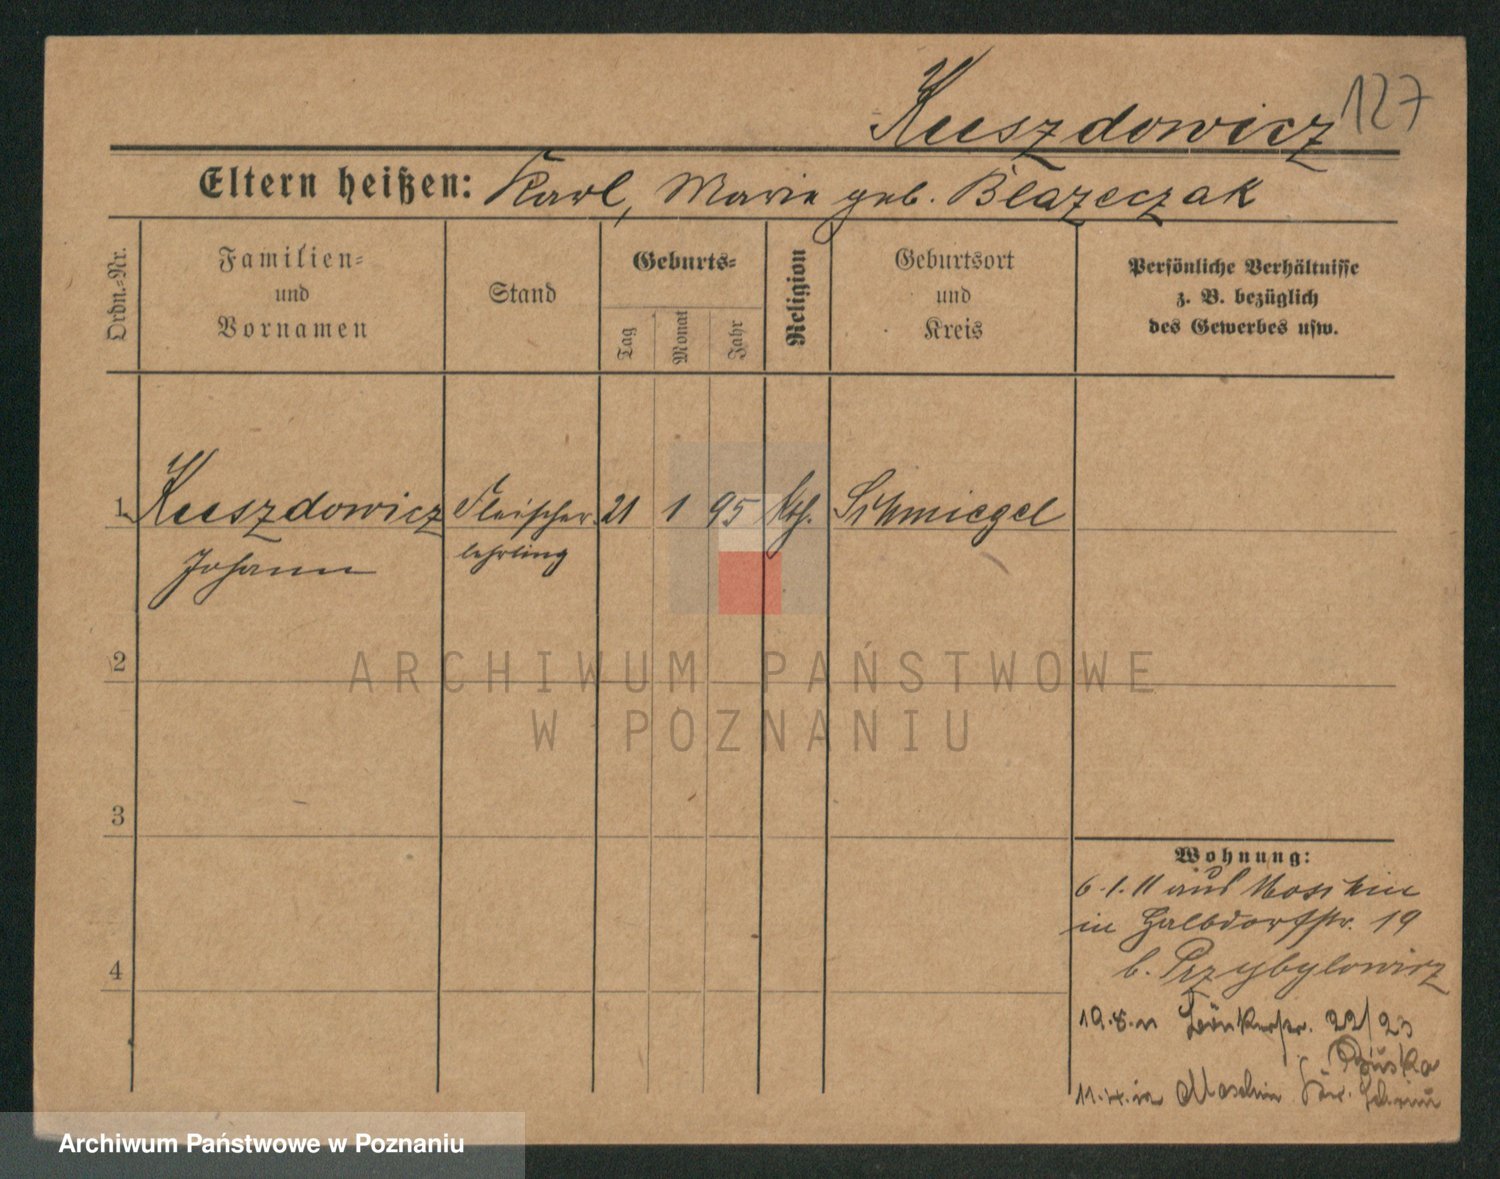 Kueszdowicz 127
Eltern heißen: Karl, Marie geb. Blazeczak
Ordn.-Nr.
Familien-
und
Vornamen
Stand
Geburts-
Tag
Monat
Jahr
Religion
Geburtsort
und
Kreis
Persönliche Verhältnisse
z. B. bezüglich
des Gewerbes usw.
1 Kueszdowicz Fleischer 21 1 95 kath. Schmiegel
Johann lehrling
2
3
4
Wohnung:
6.1.11 aus Moschin
in Halbdorfstr. 19
b. Przybylowicz
22/23
Moschin
ARCHIWUM PAŃSTWOWE
W POZNANIU
Archiwum Państwowe w Poznaniu